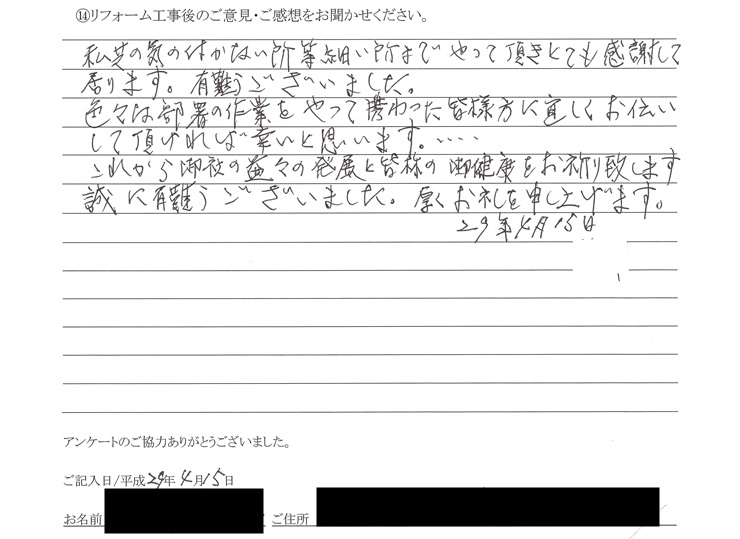 ⑭リフォーム工事後のご意見・ご感想をお聞かせください。
私共の気の付かない所等細い所までやって頂きとても感謝して
居ります。有難うございました。
色々な部署の作業をやって携わった皆様方に宜しくお伝い
して頂ければ幸いと思います。・・・・
これから御社の益々の発展と皆様の御健康をお祈り致します
誠に有難うございました。厚くお礼を申し上げます。
29年4月15日
アンケートのご協力ありがとうございました。
ご記入日/平成29年4月15日
お名前 ご住所